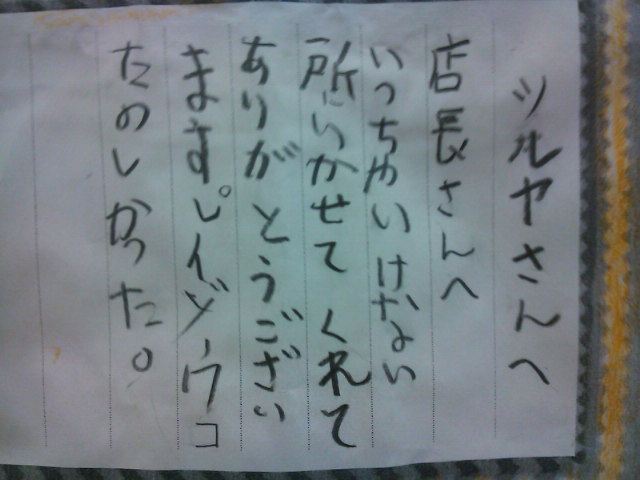 ツルヤさんへ
店長さんへ
いっちゃいけない
所にいかせてくれて
ありがとうござい
ますれイゾウコ
たのしかった。